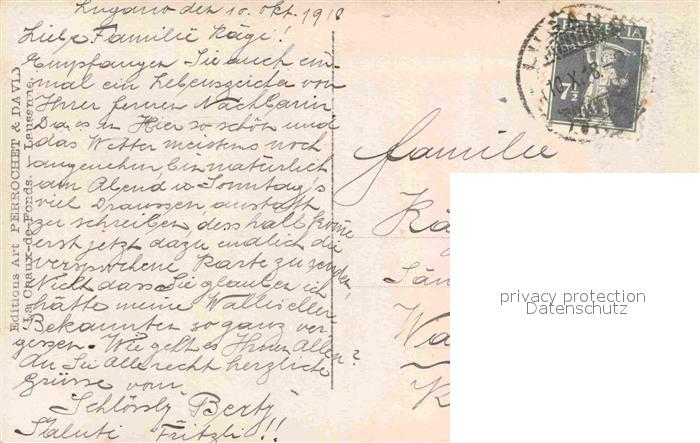 Lugano den 10. Okt. 1918
Liebe Familie Kägi!
Empfangen Sie auch ein-
mal ein Lebenszeichen von
Ihrer fernen Nachbarin
Da es hier so schön und
das Wetter meistens noch
angenehm, bin natürlich
am Abend, u. Sonntag's
viel Draussen anstatt
zu schreiben, desshalb komme
erst jetzt dazu endlich die
versprochene Karte zu senden,
Nicht dass Sie glauben ich
hätte meine Walliseller
Bekannten so ganz ver-
gessen. Wie geht es Ihnen Allen?
An Sie Alle recht herzliche
Grüsse vom
Schlössly Berty
Saluti Fritzli!!
Editions Art PERROCHET & DAVID
La Chaux-de-Fonds. Lausanne.
Familie
Kä
Wa
LUGANO
7½
privacy protection
Datenschutz